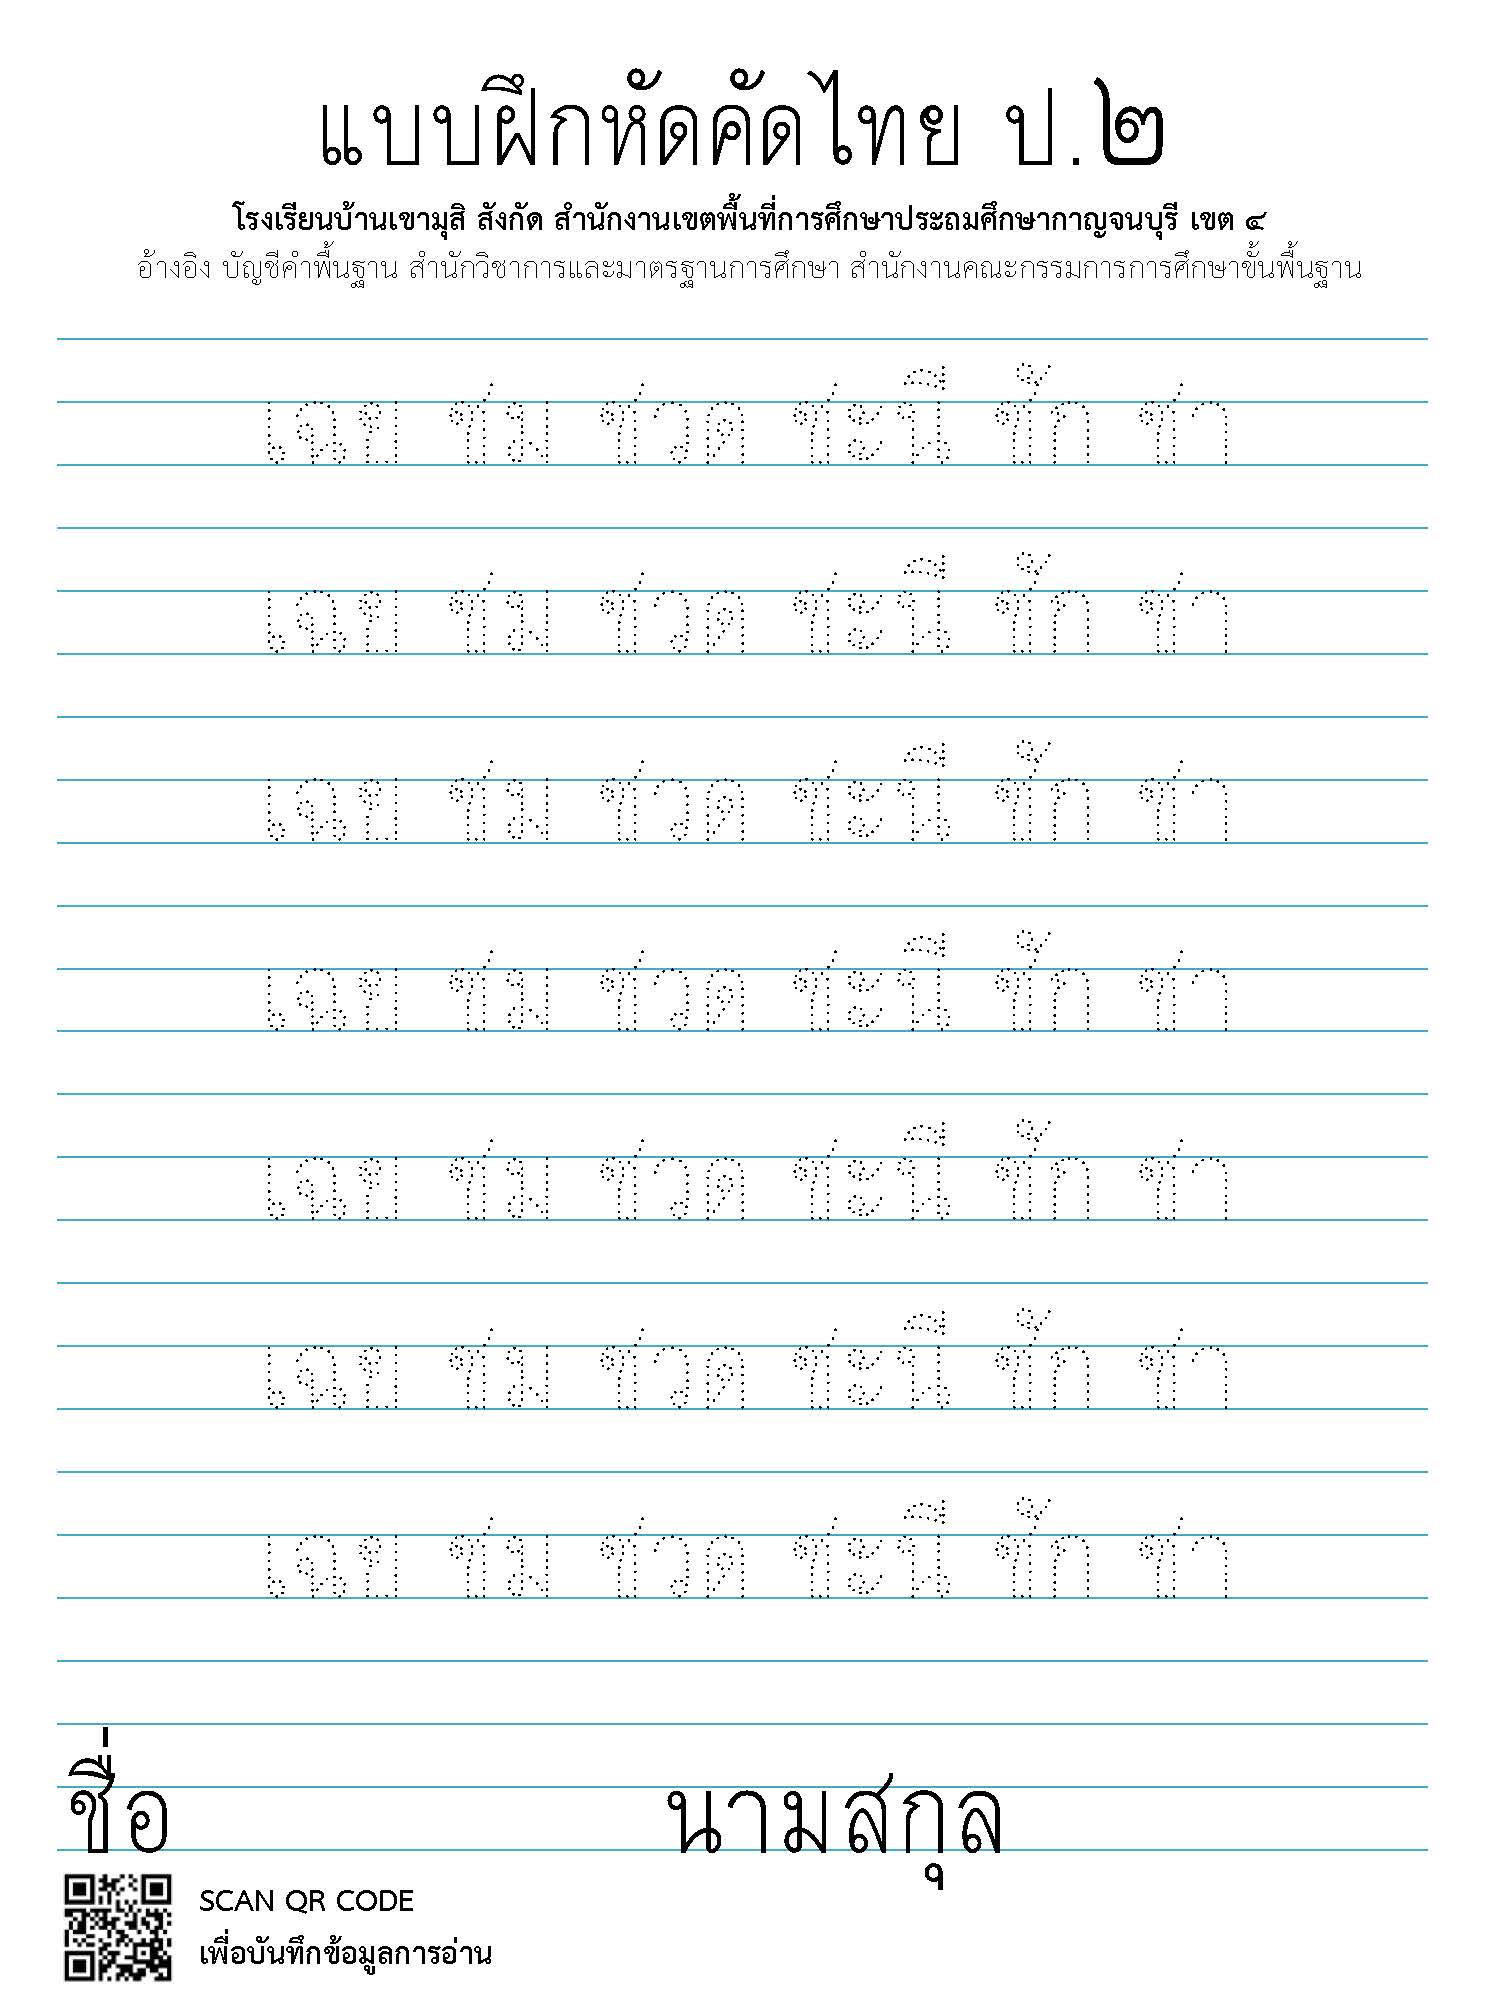 แบบฝึกหัดคัดไทย ป.๒
โรงเรียนบ้านเขามุสิ สังกัด สำนักงานเขตพื้นที่การศึกษาประถมศึกษากาญจนบุรี เขต ๔
อ้างอิง บัญชีคำพื้นฐาน สำนักวิชาการและมาตรฐานการศึกษา สำนักงานคณะกรรมการการศึกษาขั้นพื้นฐาน
เฉย ชม ชวด ชะนี ชัก ชา
เฉย ชม ชวด ชะนี ชัก ชา
เฉย ชม ชวด ชะนี ชัก ชา
เฉย ชม ชวด ชะนี ชัก ชา
เฉย ชม ชวด ชะนี ชัก ชา
เฉย ชม ชวด ชะนี ชัก ชา
เฉย ชม ชวด ชะนี ชัก ชา
ชื่อ นามสกุล
SCAN QR CODE
เพื่อบันทึกข้อมูลการอ่าน